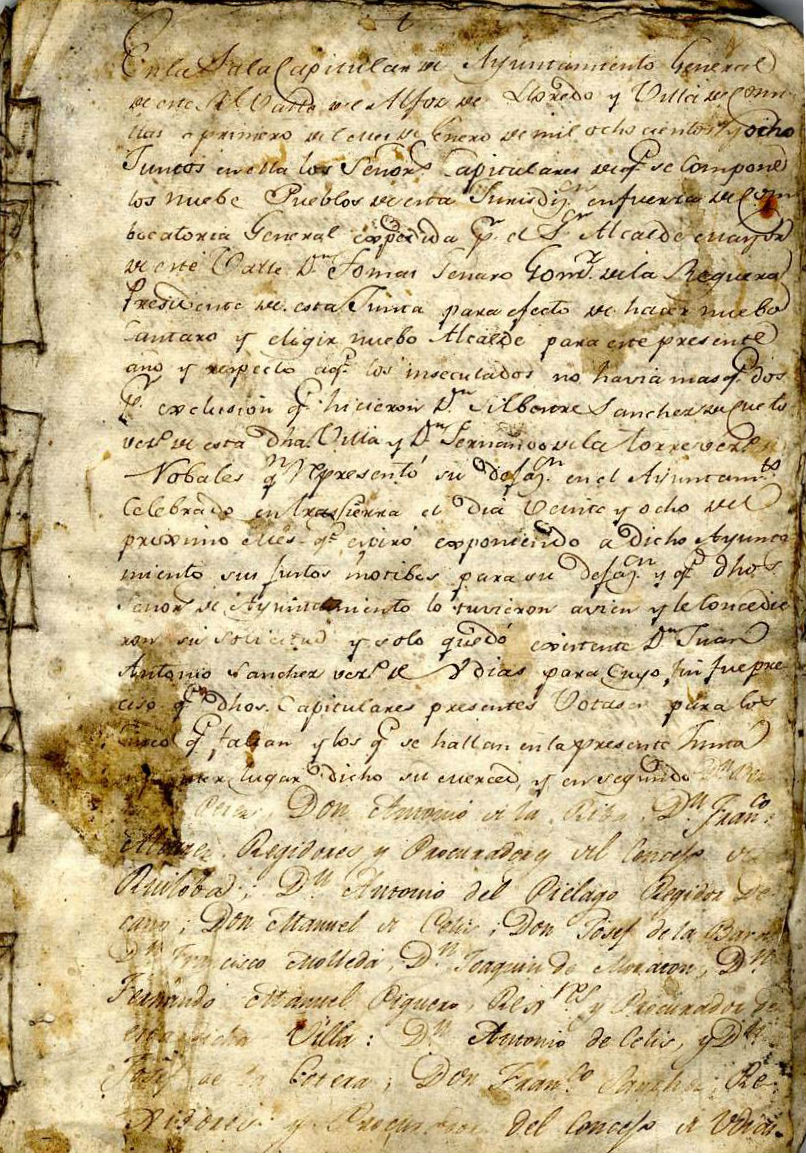 En la Sala Capitular de Ayuntamiento General
de este Rl. Valle de Alfoz de Lloredo y Villa de Comi-
llas a primero del mes de Enero de mil ocho cientos y ocho
Juntos en ella los Señores Capitulares de qe. se compone
los nuebe Pueblos de esta Jurisdizn. en fuerza de Com
bocatoria General expedida pr. el Sr. Alcalde mayor
de este Valle Dn. Tomas Genaro Gomz. de la Reguera
Presidente de esta Junta para efecto de hacer nuebo
Cantaro y eligir nuebo Alcalde para este presente
año y respecto a qe. los inseculados no havia mas qe. dos
pr. exclusion qe. hicieron Dn. Silbestre Sanchez de Cueto
vezo. de esta dha. Villa y Dn. Fernando de la Torre vezo. de
Nobales qn. represento su en el Ayuntamto.
Celebrado en Trasierra el dia Veinte y ocho del
proximo Mes qe. espiró exponiendo a dicho Ayunta
miento sus justos motibos para su y qe. dhos.
Señores de Ayuntamiento lo tuvieron avien y le Concedie
ron su solicitud y solo quedó existente Dn. Juan
Antonio Sanchez vezo. de Vdias para Cuyo fin fue pre
ciso qe. dhos. Capitulares presentes Votasen para los
cinco qe. faltan y los qe. se hallan en la presente Junta
primer lugar dicho su merced, y en segundo Dn.
Perez, Don Antonio de la Riba, Dn. Franco.
Regidores y Procuradores del Concejo de
Ruiloba; Dn. Antonio del Pielago Regidor De-
cano; Don Manuel de Celis; Don Josef de la Barra
Dn. Francisco Molleda, Dn. Joaquin de Moraton, Dn.
Fernando Manuel Piquero, Rexres. y Procurador de
esta dicha Villa: Dn. Antonio de Celis, y Dn.
Josef de la Cotera; Don Franco. Sanchez, Re-
xidores y Procurador del Concejo de Vdias